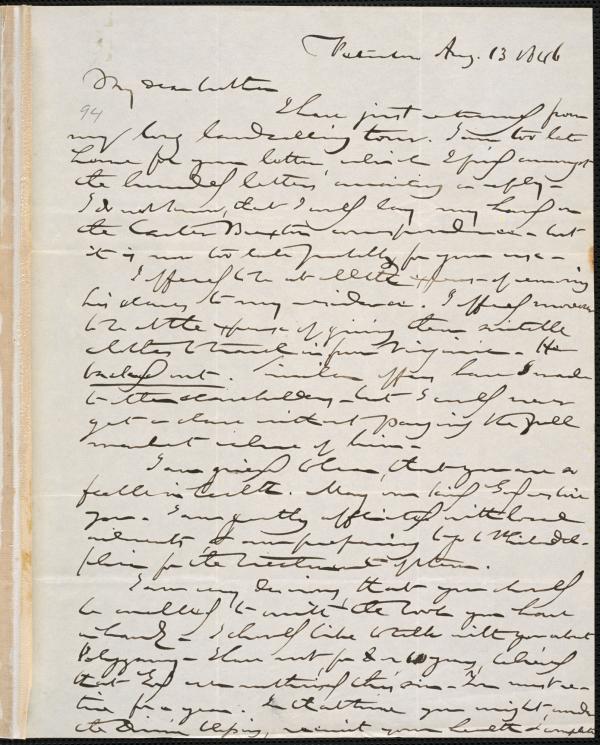 Peterboro Aug. 13 1846
My dear brother
94
I have just returned from
my long landselling tour. I am too late
home for your letter which I find amongst
the hundred letters awaiting a reply –
I do not know, that I could lay my hand on
the Carter Braxton correspondence – but
it is now too late probably for your use –
I offered to be at all the expense of removing
his slaves to my residence. I offered moreover
to be at the expense of giving them suitable
clothes to travel in from Virginia – He
backed out. Similar offers have I made
to other slaveholders – but I could never
get a slave without paying the full
market value of him –
I am grieved to learn, that you are so
feeble in health. May our kind God revive
you – I am greatly afflicted with
ailments, & am preparing to go to Philadel-
phia for the treatment of them.
I am very desirous, that you should
be enabled to write the book you have
in hand – I should like to talk with you about
Polygamy – I have not, for 8 or 10 years, believed
that God winked at this sin – You must re-
tire for a year. In that time you might, under
the Divine blessing, recruit your health & complete